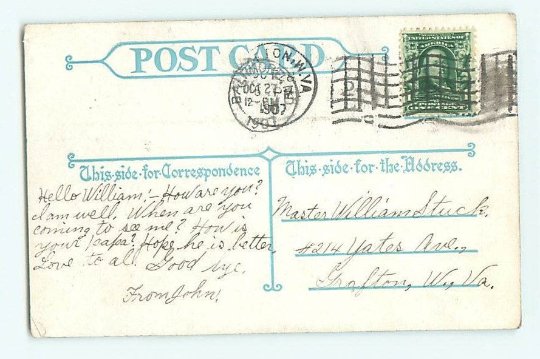 POST CARD
W.VA
OCT 25
12-PM
1907
UNITED STATES OF AMERICA
This·side·for·Correspondence
This·side·for·the·Address.
Hello William:- How are you?
I am well. When are you
coming to see me? How is
your papa? Hope he is better,
Love to all. Good bye.
From John!
Master William Stuck.
#214 Yates Ave.,
Grafton, W. Va.